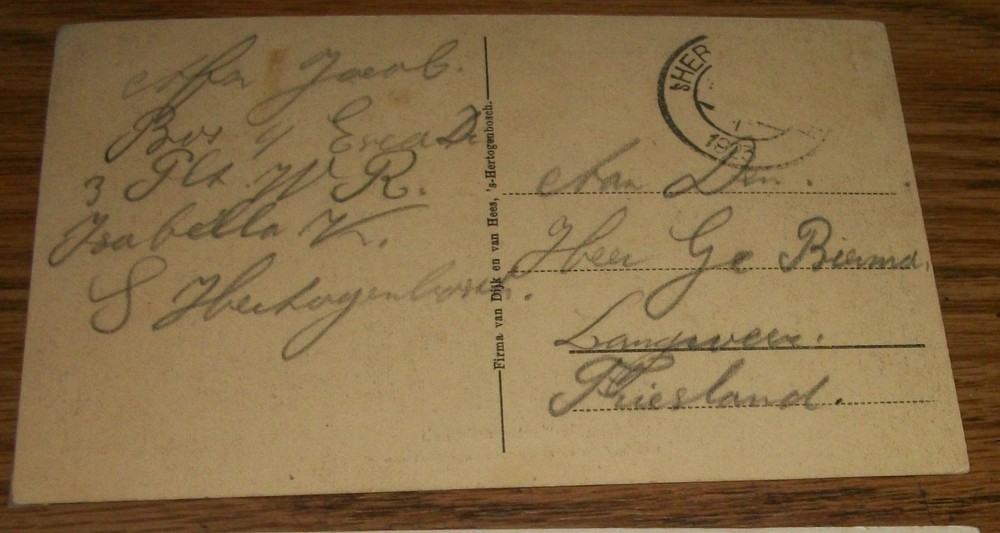 Afz Jacob.
Bos 4 Esca Dr
3 Plt. W R.
Isabella K.
S Hertogenbosch.
Firma van Dijk en van Hees, 's-Hertogenbosch.
SHER
Aan Den.
Heer Ge Bierma,
Langweer.
Friesland.